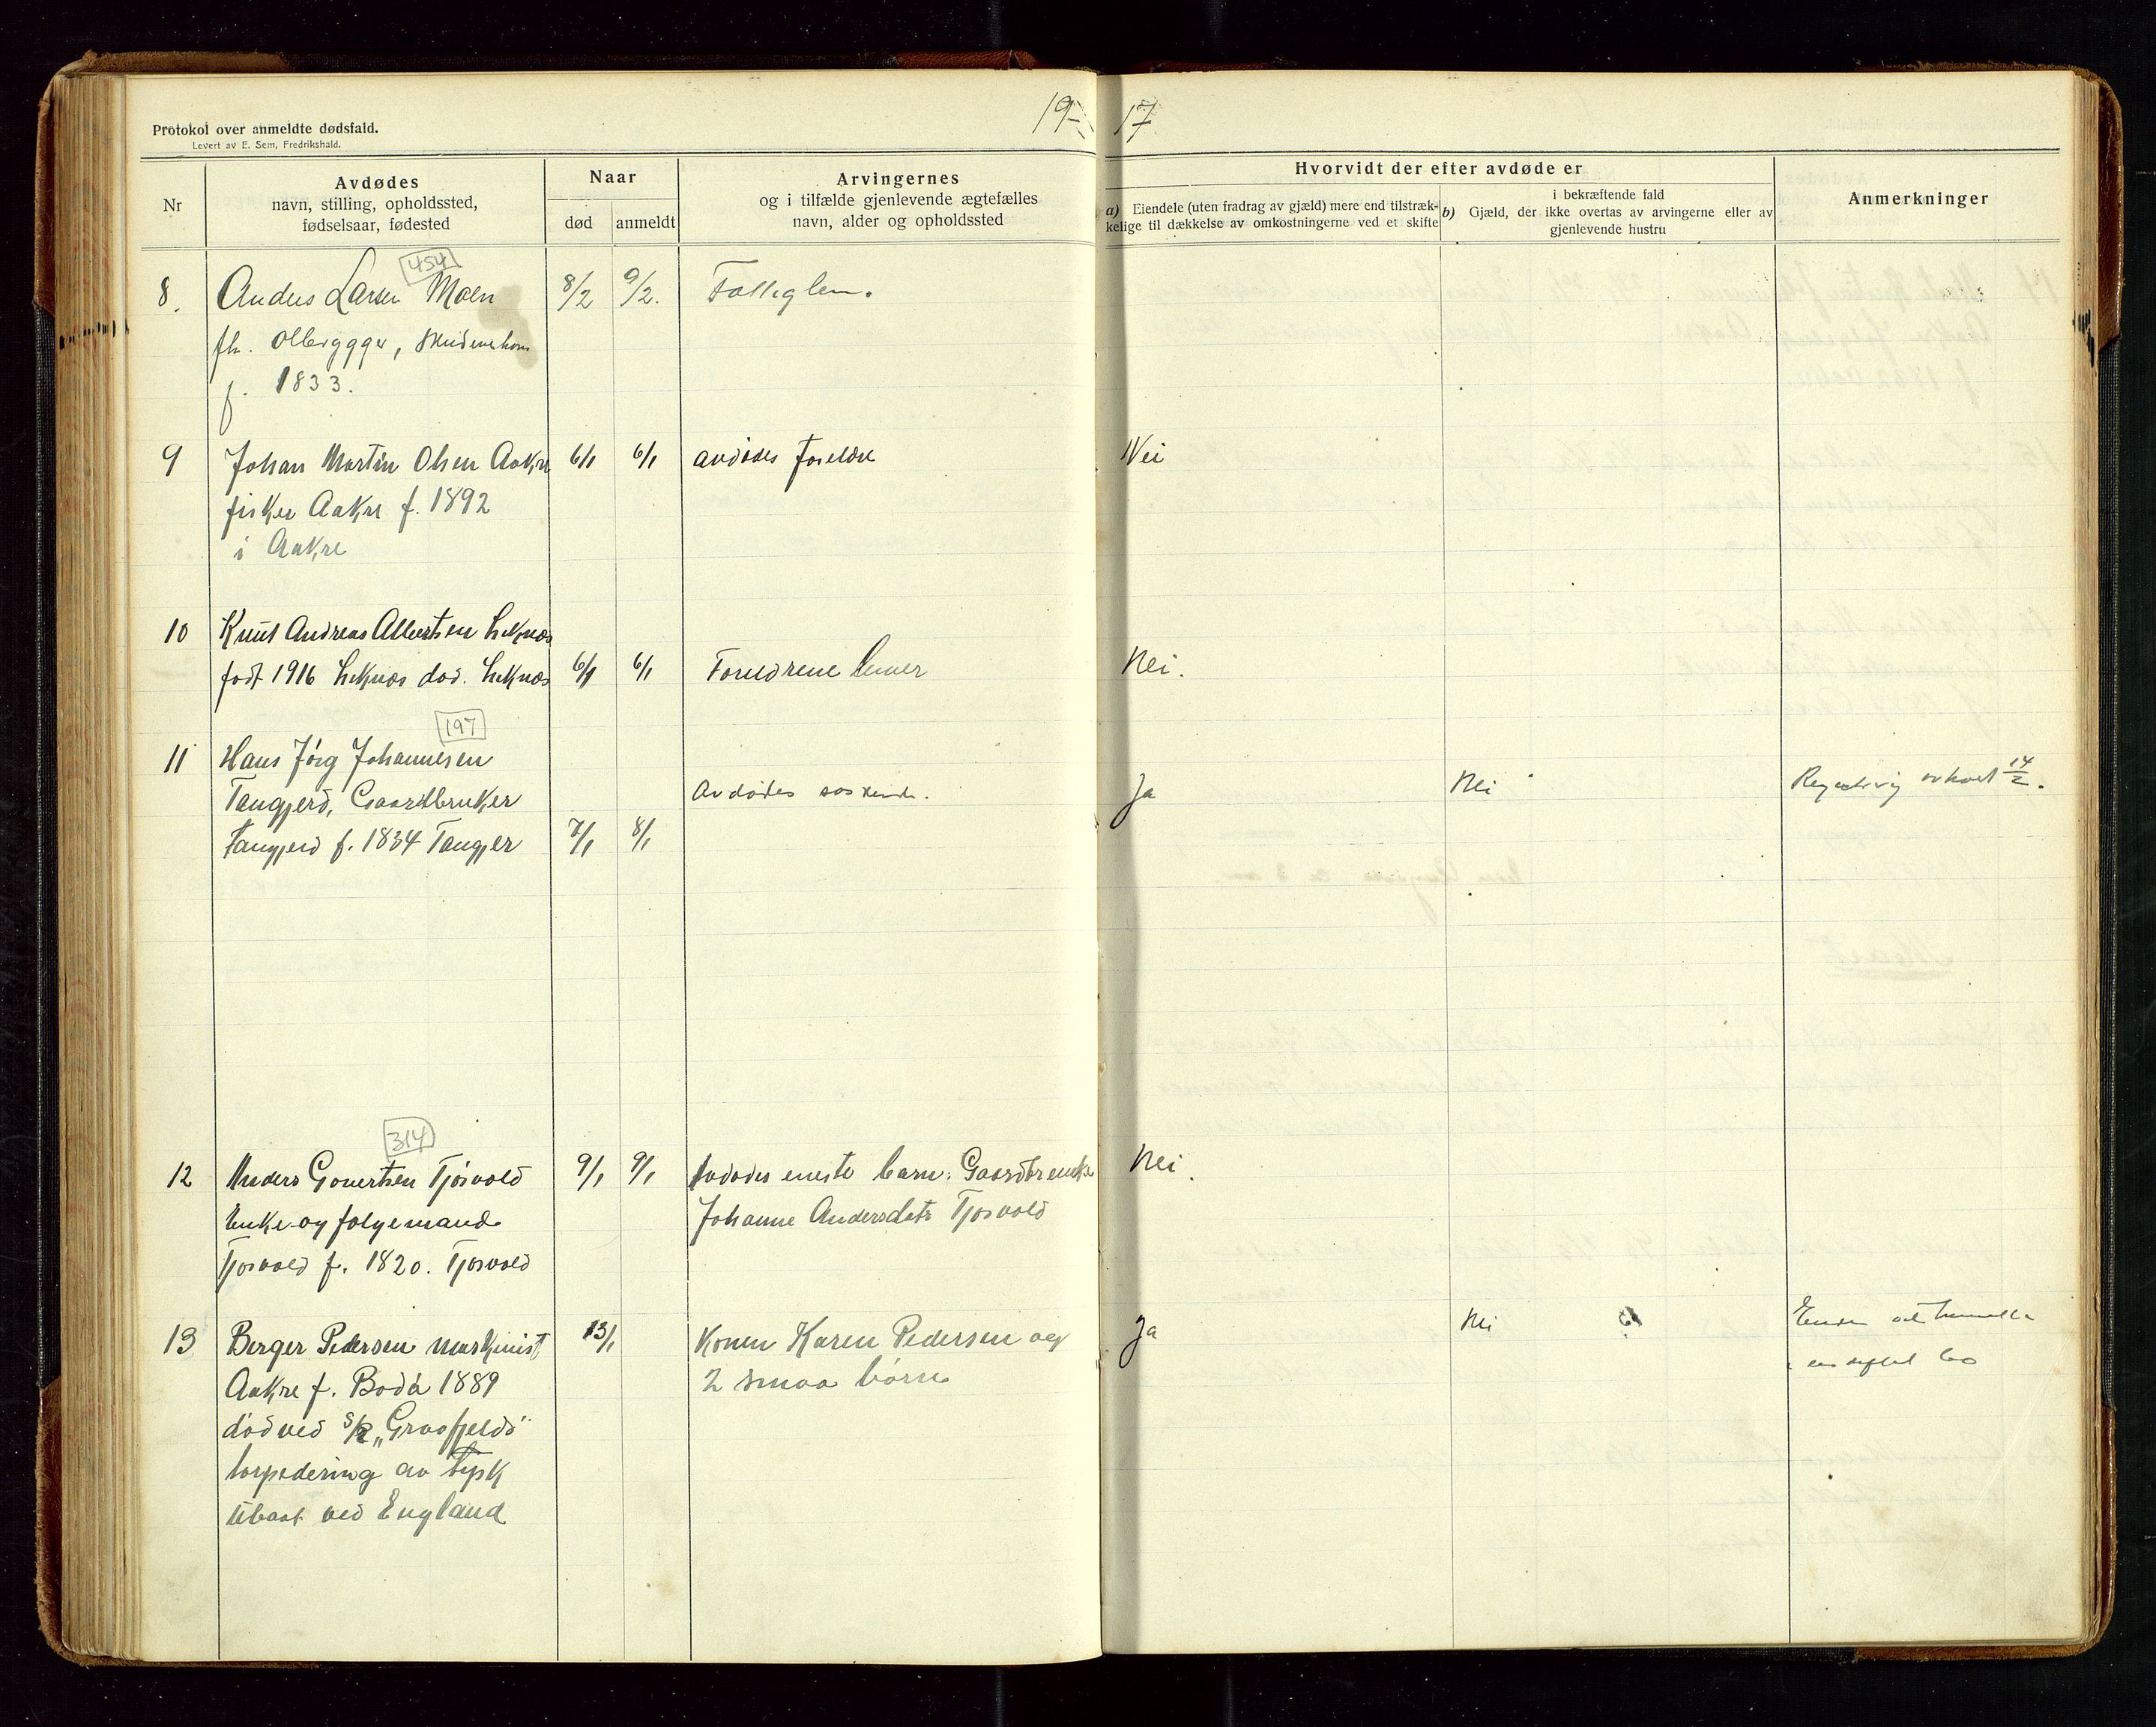 19-17
Protokol over anmeldte dødsfald.
Levert av E. Sem, Fredrikshald.
Nr
Avdødes
navn, stilling, opholdssted,
fødselsaar, fødested
Naar
død
anmeldt
Arvingernes
og i tilfælde gjenlevende ægtefælles
navn, alder og opholdssted
Hvorvidt der efter avdøde er
a) Eiendele (uten fradrag av gjæld) mere end tilstræk-
kelige til dækkelse av omkostningerne ved et skifte
i bekræftende fald
b) Gjæld, der ikke overtas av arvingerne eller av
gjenlevende hustru
Anmerkninger
454
8. Anders Larsen Moen 8/2 9/2. Fattiglem.
fh. Ølbrygger, Skudeneshavn
f. 1833.
9 Johan Martin Olsen Aakre 6/1 6/1 avdødes foreldre Nei
fisker Aakre f. 1892
i Aakre
10 Knut Andreas Albertsen Liknes
født 1916 Liknes død. Liknes 6/1 6/1 Foreldrene lever Nei.
197
11 Hans Jørg Johannesen
Tangjerd, Gaardbruker Avdødes søskende. Ja Nei 14/2.
Tangjerd f. 1834 Tangjer 7/1 8/1
314
12 Anders Govertsen Tjøsvold 9/1 9/1 Avdødes eneste barn: Gaardbruker Nei.
Enke og følgemand Johanne Andersdatr Tjøsvold
Tjosvold f. 1820. Tjosvold
13 Berger Pedersen maskinist 13/1 Konen Karen Pedersen og Ja Nei Enken
Aakre f. Bodø 1889 2 smaa børn uskiftet bo
død ved s/s „Graafjelds"
torpedering av tysk
Ubaat ved England